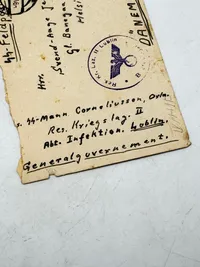 SS-Feldpost
Hrr.
Svend-Aage
Gl. Banegaa
Helsin
DÄNEM
Res. Kr. Laz. II Lublin
s. SS-Mann. Corneliussen, Orla.
Res. Kriegslaz. II
Abt. Infektion. Lublin.
Generalguvernement.